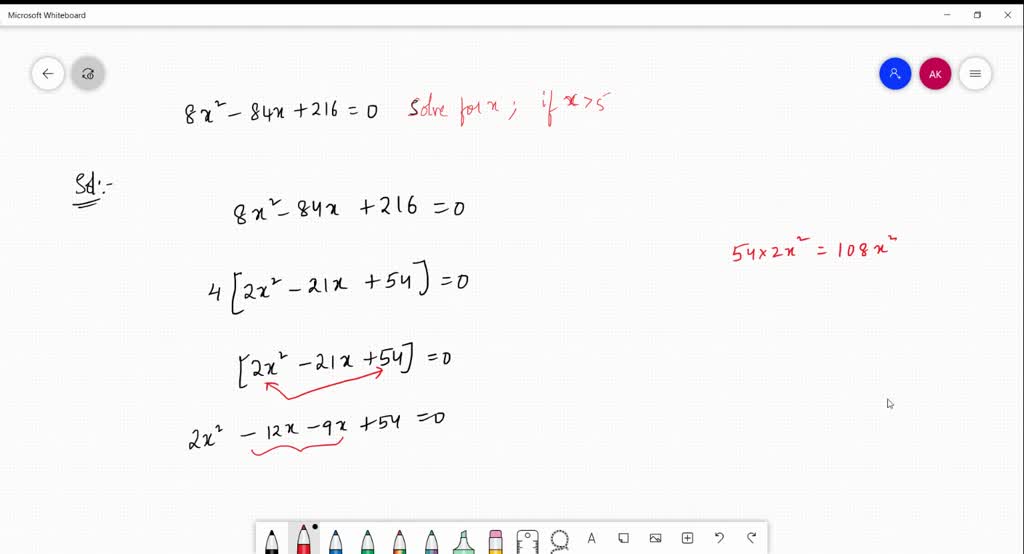 Microsoft Whiteboard
AK
8x² - 84x + 216 = 0 Solve for x ; if x > 5
Sol:-
8x² - 84x + 216 = 0
54 × 2x² = 108x²
4[2x² - 21x + 54] = 0
[2x² - 21x + 54] = 0
2x² - 12x - 9x + 54 = 0
A